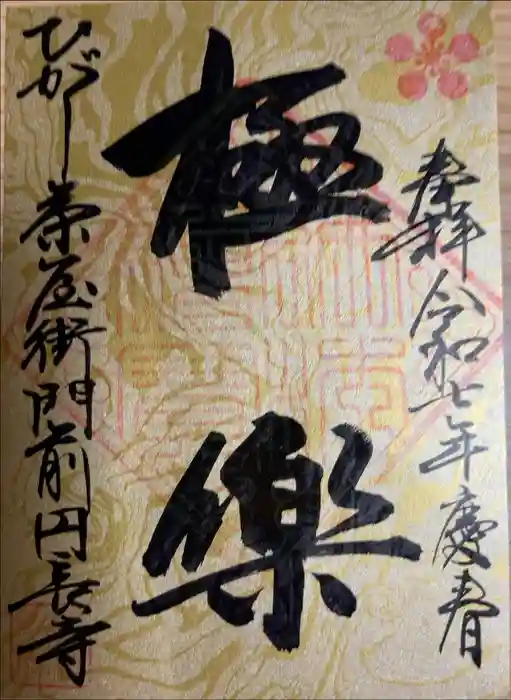 奉拝 令和七年 慶春
極楽
ひがし茶屋街門前円長寺